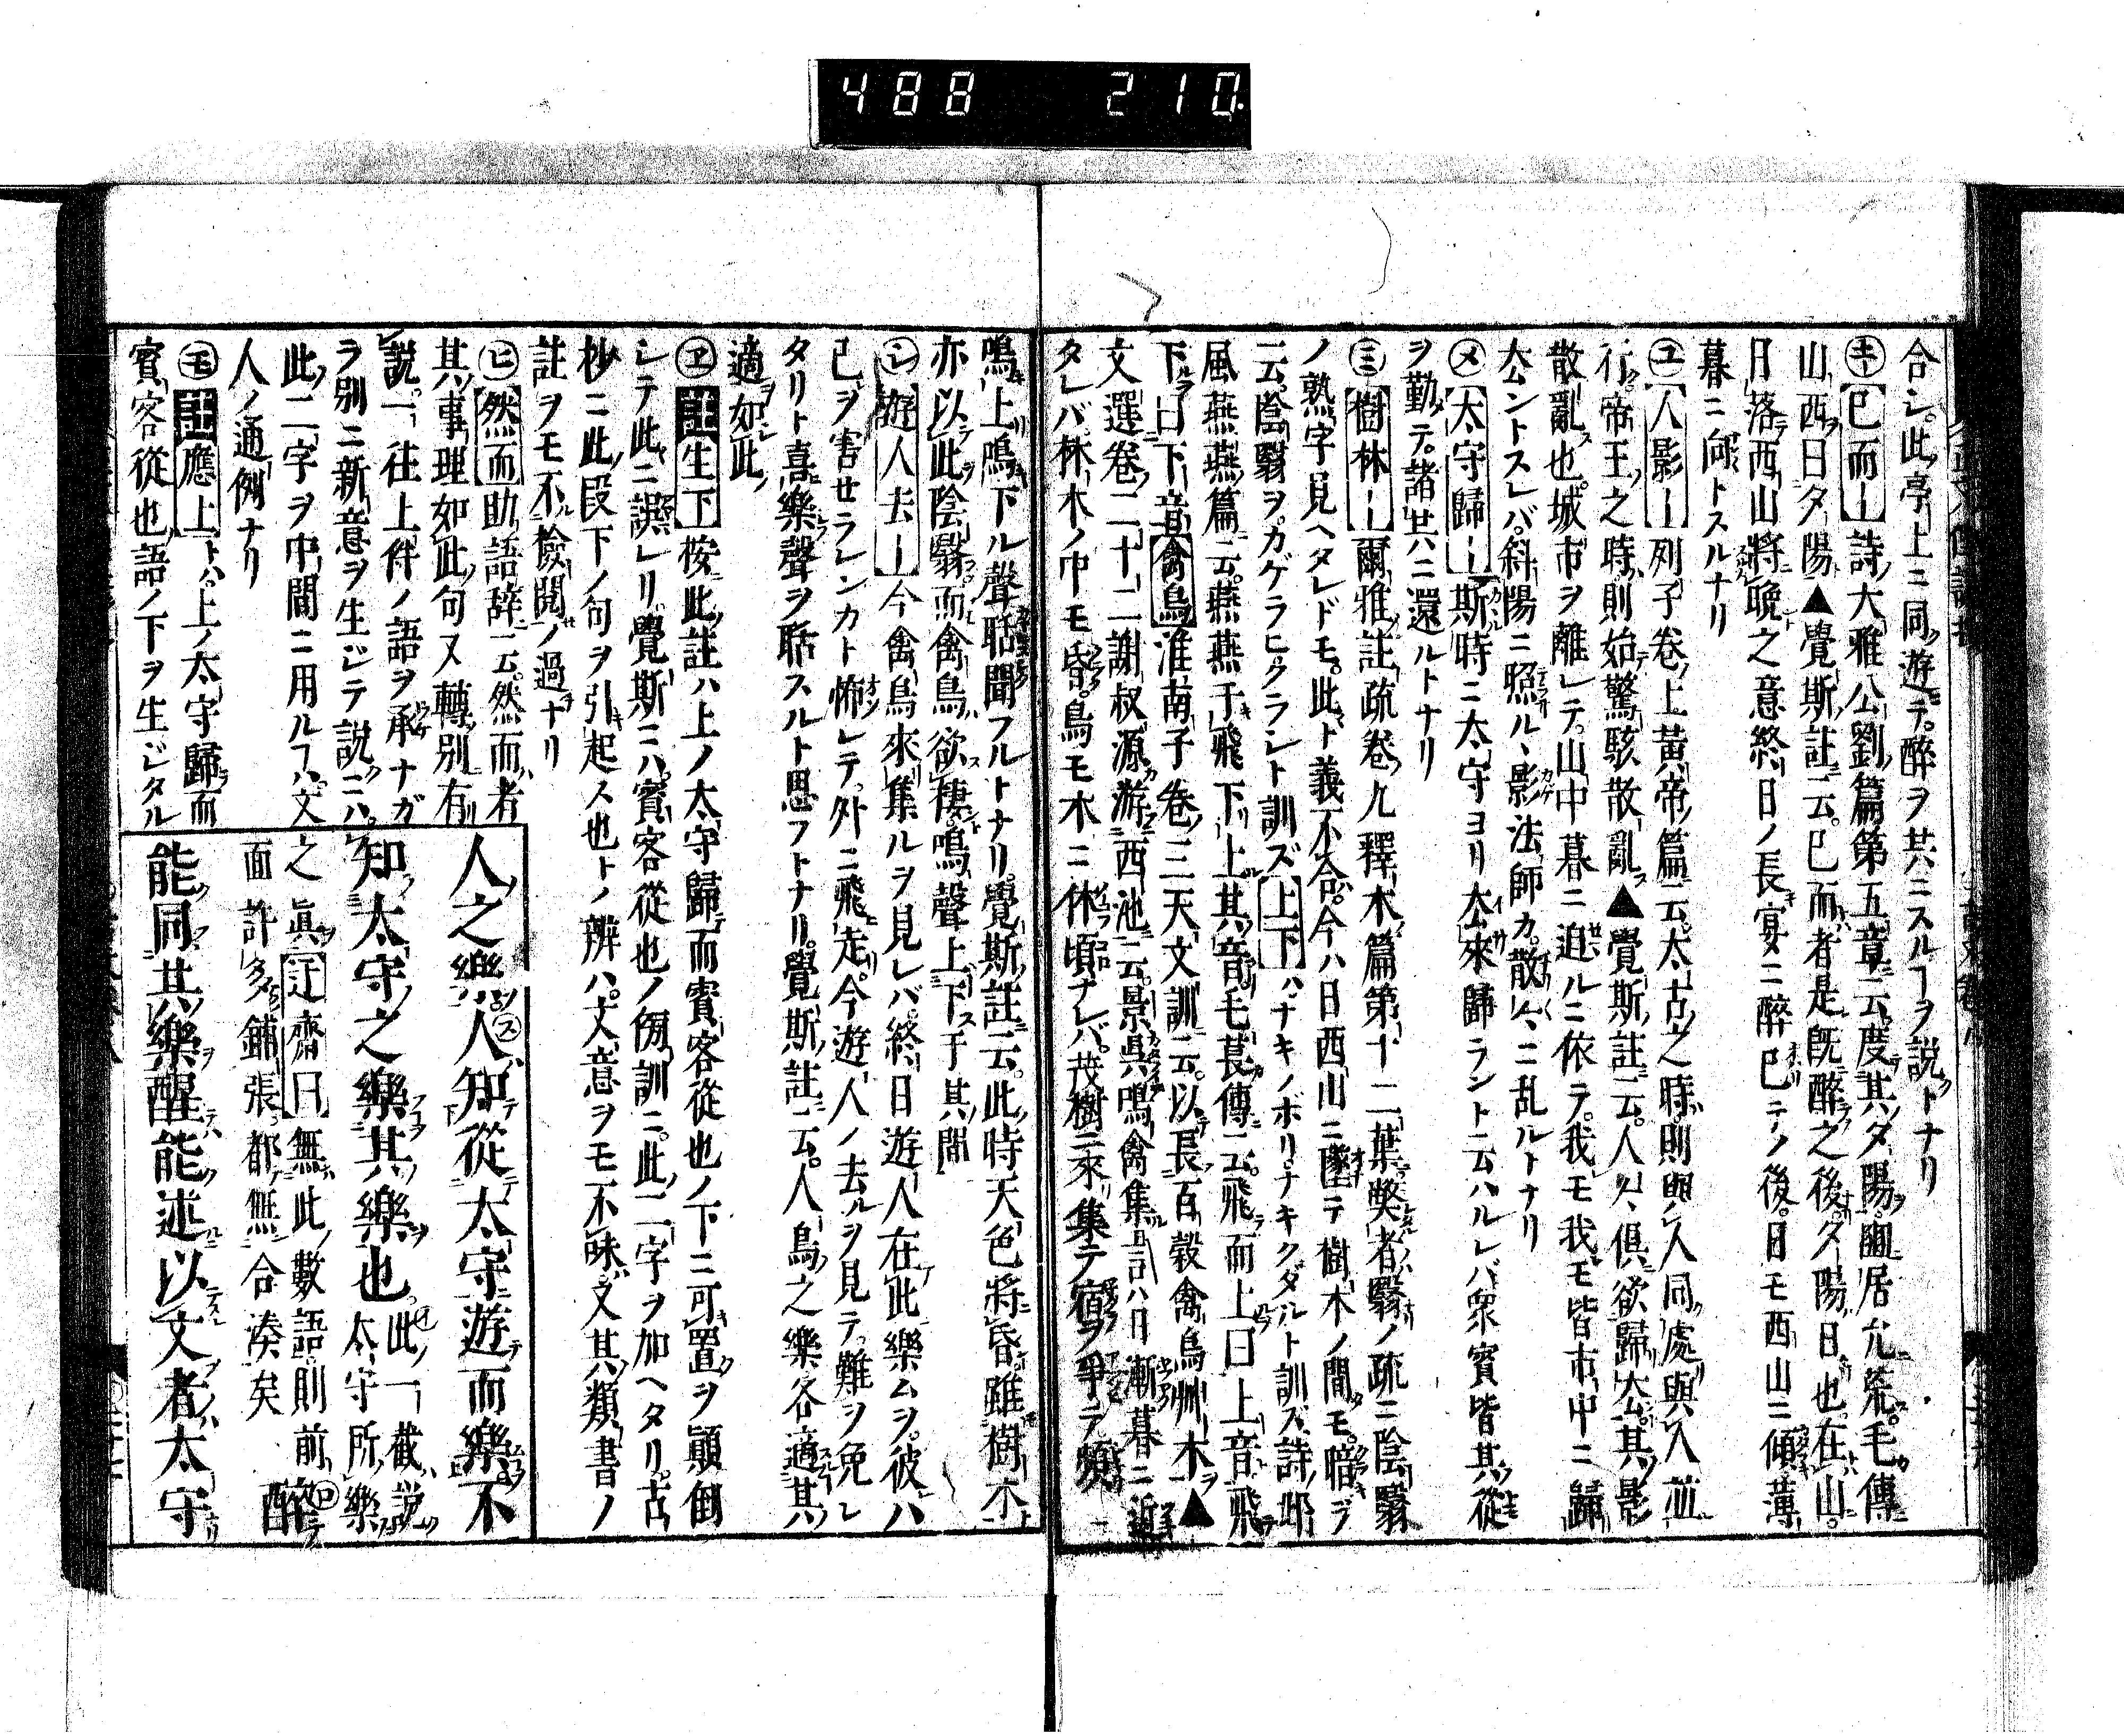 488 210
合シ。此亭上ニ同遊テ。醉ヲ共ニスルヿヲ説トナリ
㋖已而ー詩大雅公劉篇第五章云。度其夕陽。豳居允荒。毛傳
山西曰夕陽▲覺斯註云。已而者是既醉之後。夕陽日也。在山。
日落西山將晚之意終日ノ長宴ニ醉已テノ後。日モ西山ニ傾薄
暮ニ向トスルナリ
㋴人影ー列子卷上黃帝篇云。太古之時。則與人同處與人並
行。帝王之時。則始驚駭散亂▲覺斯註云。人倶欲歸去。其影
散亂也。城市ヲ離レテ。山中暮ニ迫ルニ依テ。我モ我モ皆市中ニ歸
去ントスレバ。斜陽ニ照ル、影法師カ。散々ニ乱ルトナリ
㋱太守歸ー斯時ニ太守ヨリ去來歸ラント云ハルレバ衆賓皆其從
ヲ勤テ。諸共ニ還ルトナリ
㋯樹林ー爾雅註疏卷九釋木篇第十二葉蔽者翳ノ疏ニ陰翳
ノ熟字見ヘタレドモ。此ト義不合。今ハ日西山ニ墮テ樹木ノ間モ。暗ヲ
云。陰翳ヲ。カゲラヒクラシト訓ズ上下ハ。ナキノボリ。ナキクダルト訓ズ。詩邶
風燕燕篇云。燕燕于飛下上其音毛萇傳云。飛而上曰上音飛
下曰下音禽鳥淮南子卷三天文訓云。以長百穀禽鳥艸木▲
文選卷二十二謝叔源游西池云。景昃鳴禽集 日漸暮ニ近
タレバ。林木ノ中モ昏。鳥モ木ニ休頃ナレバ。茂樹ニ來集テ宿ヲ爭テ頻
鳴上鳴下ル聲聒聞フルトナリ。覺斯註云。此時天色將昏。雖樹木
亦以此陰翳。而禽鳥欲棲。鳴聲上下于其間
㋛遊人去ー今禽鳥來集ルヲ見レバ。終日遊人在此樂ムヲ。彼ハ
已ヲ害セラレンカト怖レテ。外ニ飛走。今遊人ノ去ルヲ見テ。難ヲ免レ
タリト喜樂聲ヲ聒スルト思フトナリ。覺斯註云。人鳥之樂各適其
適如此
㋓註生下按此註ハ上ノ太守歸而賓客從也ノ下ニ可置ヲ顛倒
シテ此ニ誤レリ。覺斯ニハ。賓客從也ノ傍訓ニ。此二字ヲ加ヘタリ。古
抄ニ此段下ノ句ヲ引起ス也トノ辨ハ。文意ヲモ不味。又其類書ノ
註ヲモ不檢閲ノ過ナリ
㋪然而助語辭云。然而者
其事理如此句又轉別有
説。一往上件ノ語ヲ承ナガ
ラ別ニ新意ヲ生ジテ説ニハ。
此二字ヲ中間ニ用ルヿハ。文
人ノ通例ナリ
㋲註應上ト。上ノ太守歸而
賓客從也語ノ下ヲ生ジタル
人之樂人知從太守遊而樂不
知太守之樂其樂也。此一截説
太守所樂
之眞迂齋曰無此數語則前
面許多鋪張都無合湊矣 醉
能同其樂醒能述以文者太守